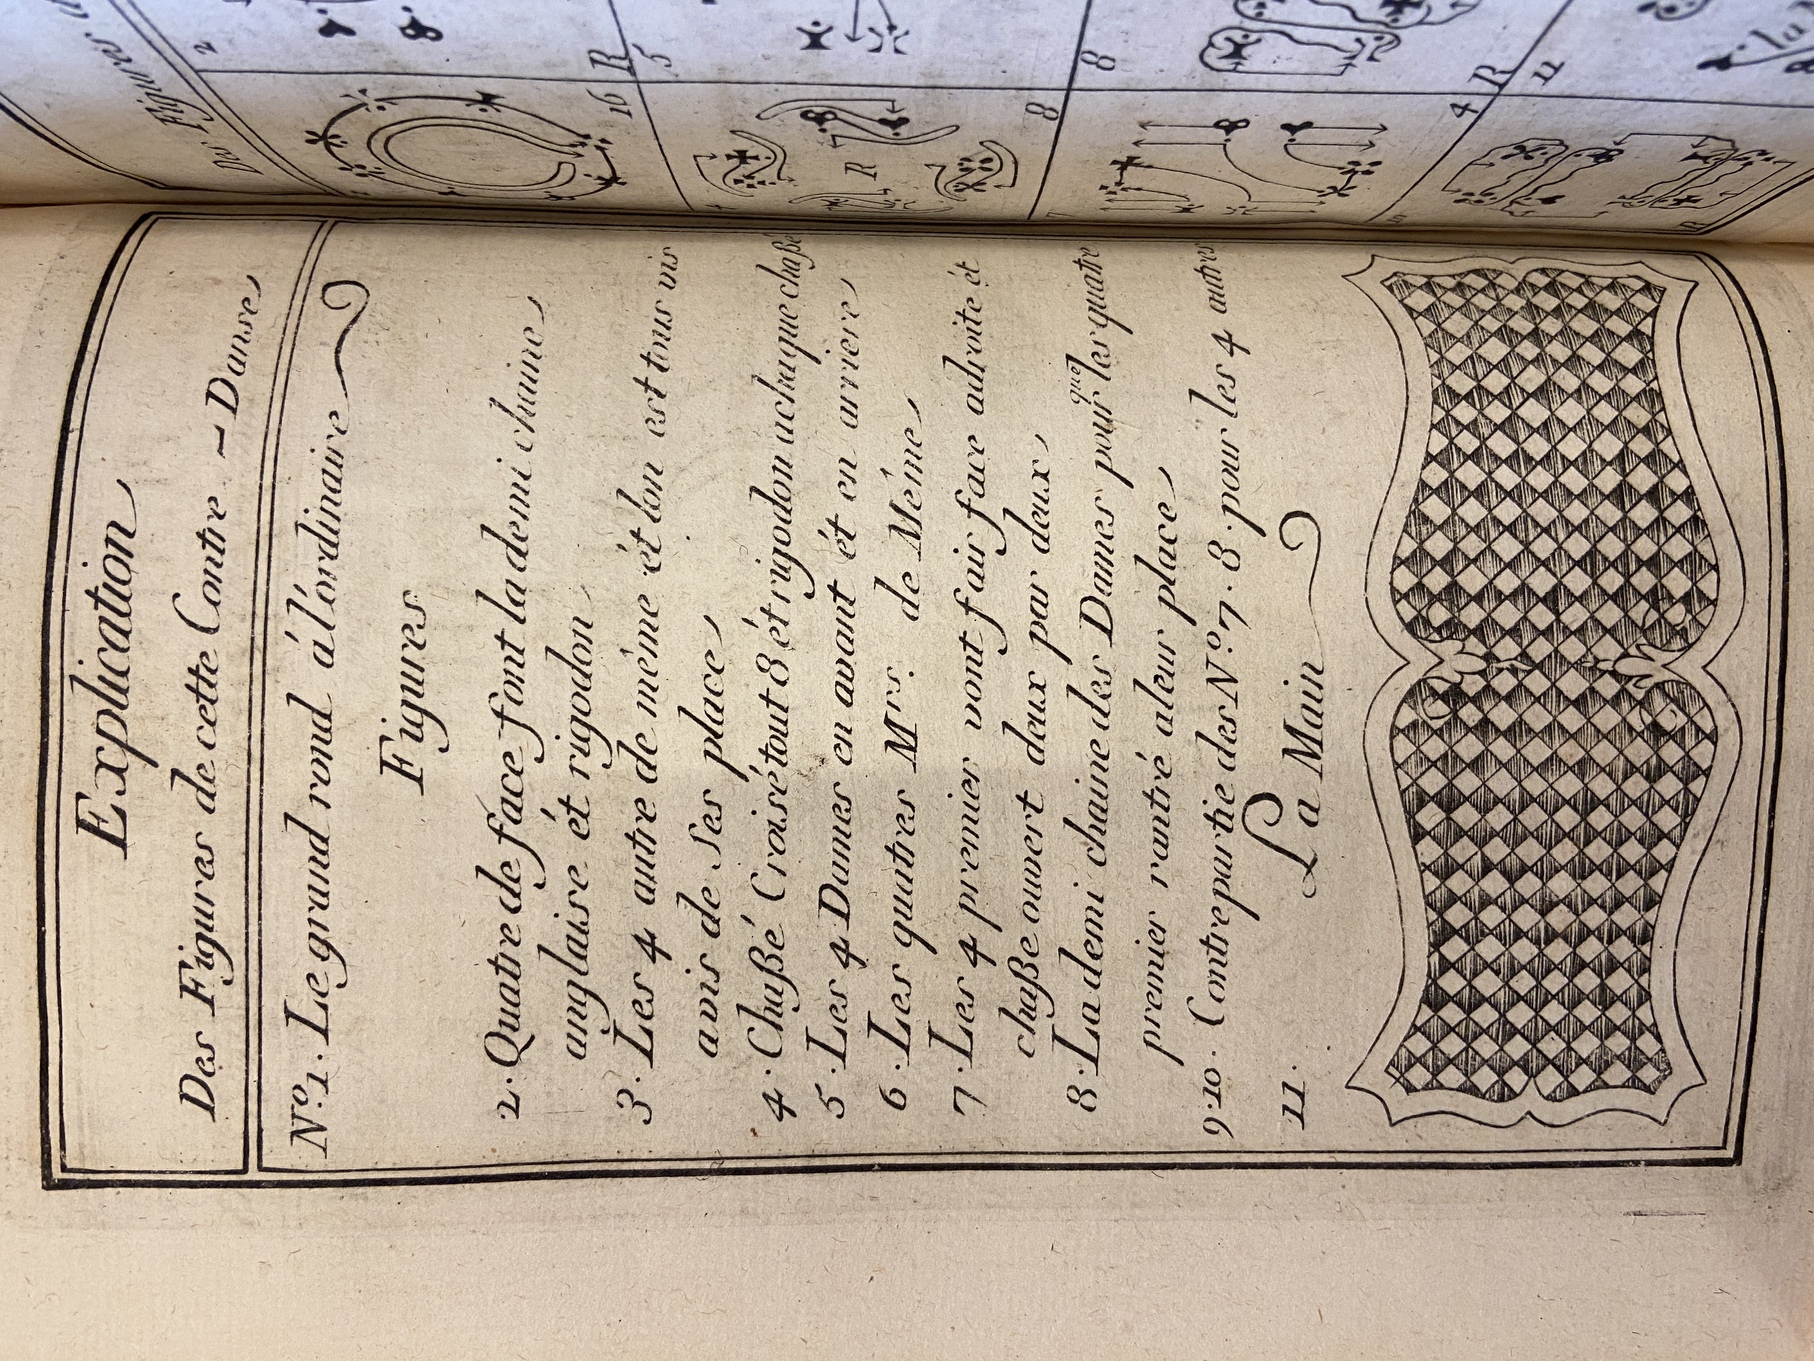 Explication
Des Figures de cette Contre - Danse
N.o 1. Le grand rond á l'ordinaire
Figures
2. Quatre de face font la demi chaine
anglaise ét rigodon
3. Les 4 autre de méme ét lon est tous vis
avis de ses place
4. Chaßé Croisé tout 8 ét rigodon a chaque chaßé
5. Les 4 Dames en avant ét en arriere
6. Les quatres M.rs. de Méme
7. Les 4 premier vont fair face adroite ét
chaße ouvert deux par deux
8. La demi chaine des Dames pour que les quatre
premier rantré a leur place
9.10. Contre partie des N.o 7. 8. pour les 4 autres
11. La Main
Des Figures
2
R
16
5
R
8
8
4
R
11